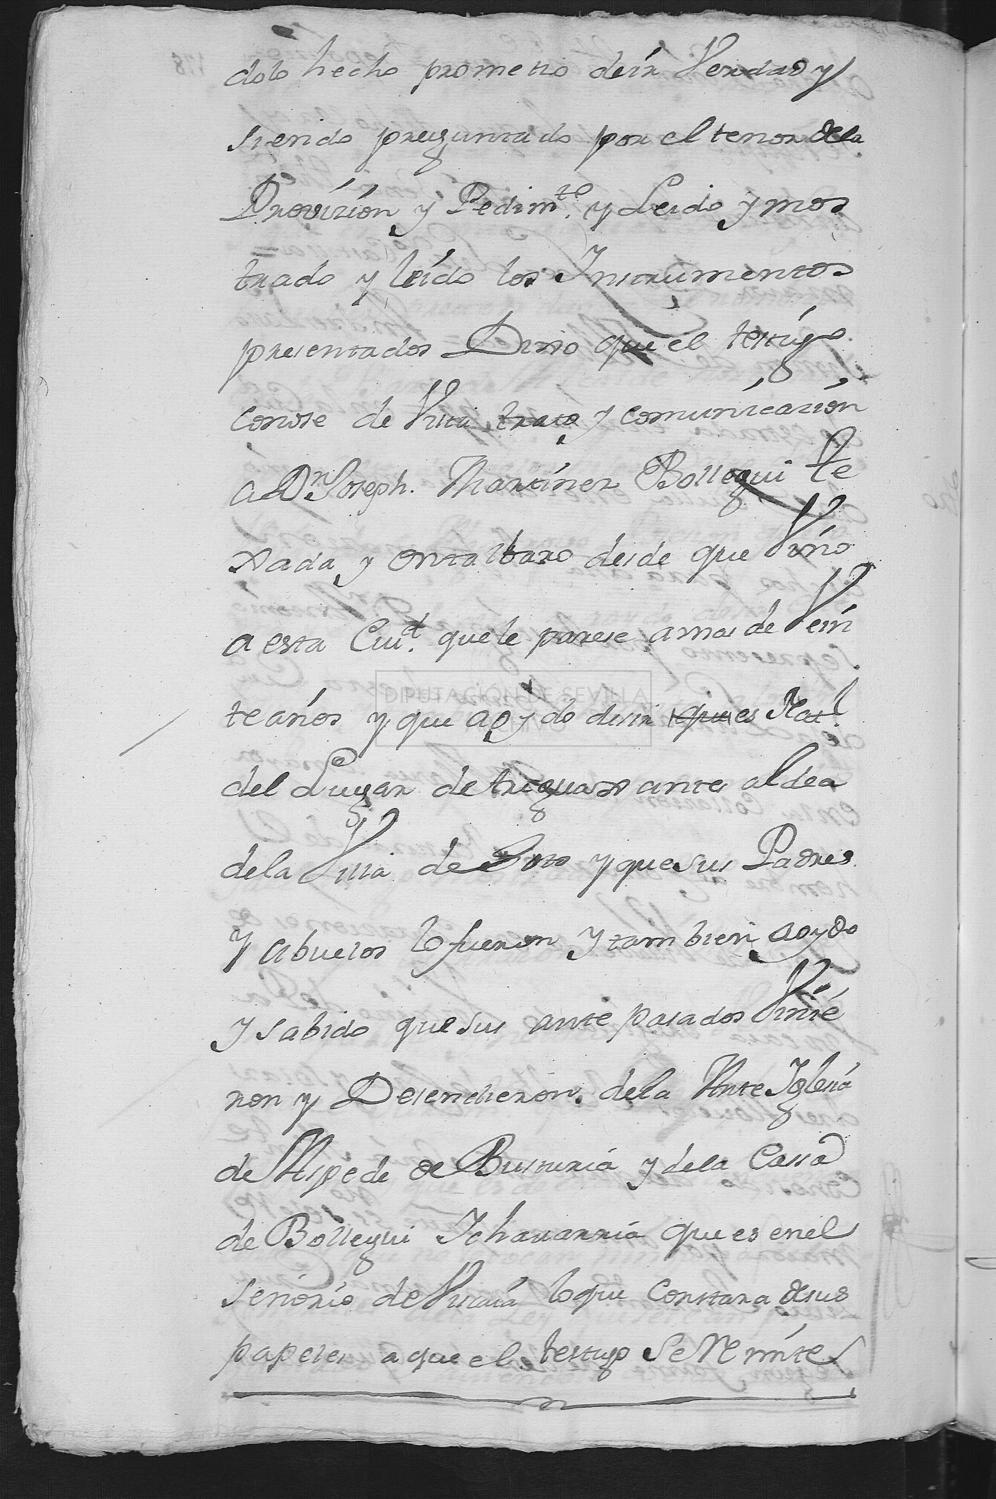 dolo hecho prometio desir Verdad y
siendo preguntado por el tenor dela
Provizion y Pedimto. y Leido y mos
trado y leido los Instrumentos
presentados Dixo que el testigo
conose de Vista trato y comunicazion
a Dn Joseph. Martinez Bollegui Te
xada y Montalbazo desde que Vino
a esta Ciud. que le parese a mas de Vein
te años y que a oydo desir que es Natl.
del Lugar de treguaxantes aldea
dela Villa de Soto y que sus Padres
y abuelos lo fueron y tambien a oydo
y sabido que sus ante pasados Vinie
ron y Desendieron. dela Ante Iglesia
de Aspe de Busturia y dela Cassa
de Bollegui Ichavarria que es en el
Señorio de Viscaia lo que Constara de sus
papeles a que el testigo Se Remite
DIPUTACIÓN DE SEVILLA
ARCHIVO